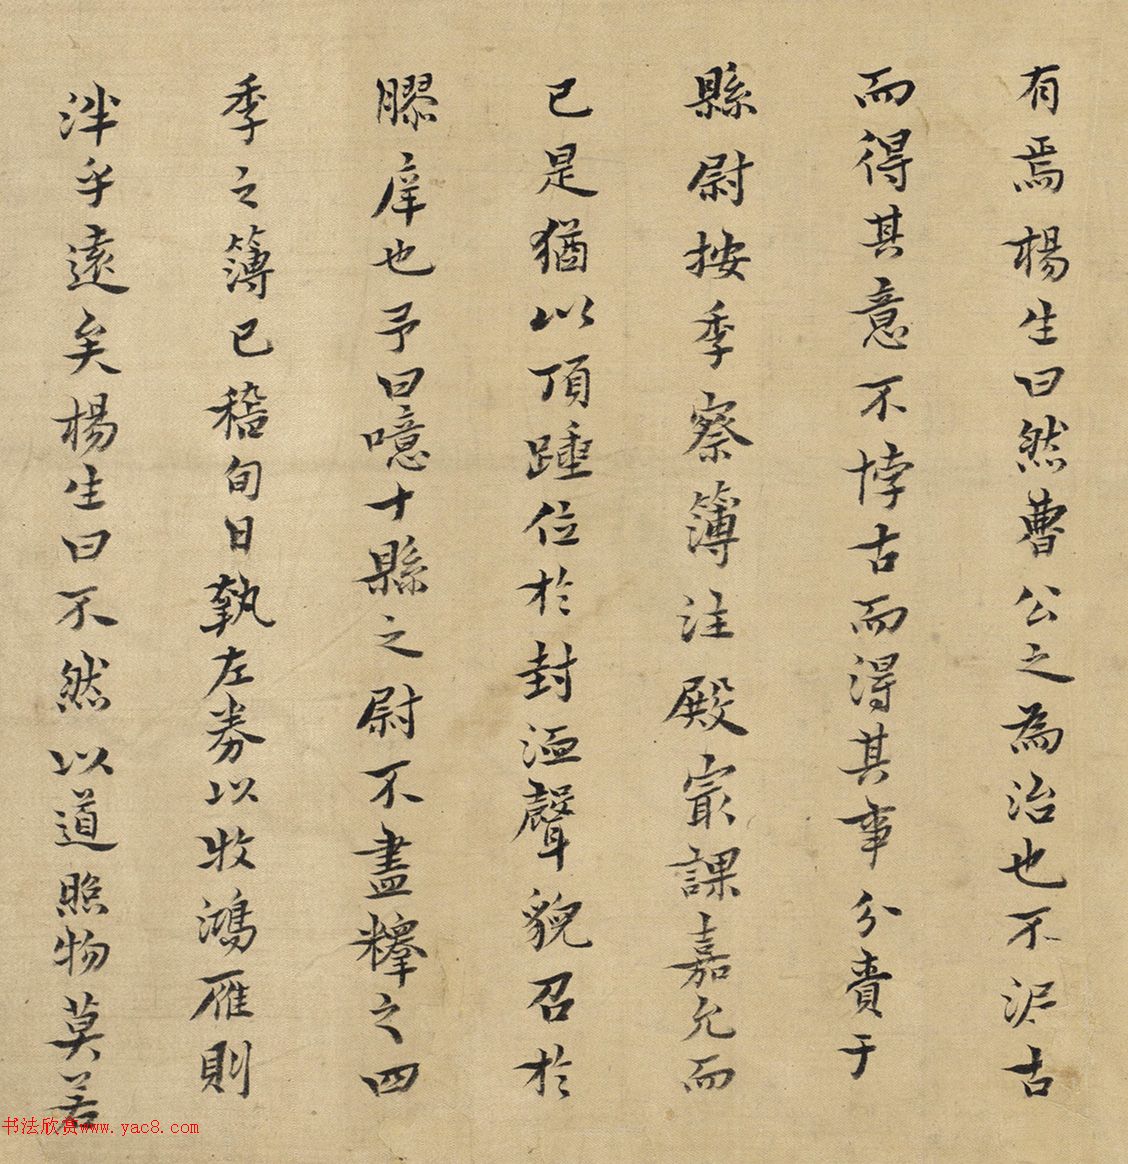 有焉楊生曰然曹公之為治也不泥古
而得其意不悖古而得其事分責于
縣尉按季察簿注殿最課嘉允而
已是猶以頂踵位於封洫聲貌召於
膠庠也予曰噫十縣之尉不盡擇之四
季之簿已稽旬日執左券以收鴻雁則
泮乎遠矣楊生曰不然以道照物莫若
书法欣赏www.yac8.com